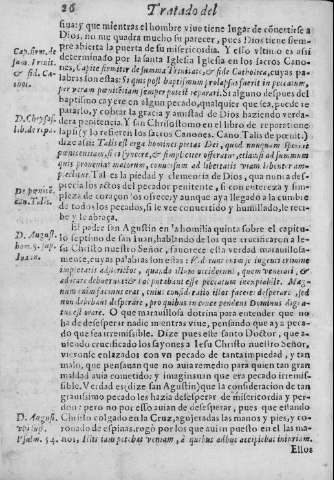 26 Tratado del
sua: y que mientras el hombre viue tiene lugar de cõuertirse a
Dios, no me quadra mucho su parecer, pues Dios tiene siem-
pre abierta la puerta de su misericordia. Y esto vltimo es assi
Cap. firm. de
determinado por la santa Iglesia Iglesia en los sacros Cano-
sum. Trinit.
nes, Capite firmiter de summa Trinitate, & fide Catholica, cuyas pa-
& fid. Ca-
labras son estas: Si quis post baptismum prolapsus fuerit in peccatum,
per veram pœnitentiam semper potest reparari. Si alguno despues del
baptismo cayere en algun pecado, qualquier que sea, puede re-
pararlo, y cobrar la gracia y amistad de Dios haziendo verda-
D. Chrysos.
dera penitencia. Y san Chrisostomo en el libro de reparatione
lib. de repa.
lapsi (y lo refieren los sacros Canones. Cano. Talis de pœnit.)
dize assi: Talis est erga homines pietas Dei, quod nunquam spernit
pœnitentiam, si ei syncere, & simpliciter offeratur, etiamsi ad summum
quis proueniat malorum,
Tal es la piedad y clemencia de Dios, que nunca des-
De pœnitẽ.
precia los actos del pecador penitente, si con entereza y sim-
Can. Talis.
pleza de coraçon los ofrece: y aunque aya llegado a la cumbre
de todos los pecados, si le vee conuertido y humillado, le reci-
be y le abraça.
El padre san Agustin en la homilia quinta sobre el capitu-
D. August.
lo septimo de san Iuan, hablando de los que crucificaron a Ie-
su Christo nuestro Señor, fauorece esta verdad marauillosa-
Ioann.
mente, cuyas palabras son estas:
impietatis adiicerbos, quando illum occiderunt, quem venerari, &
adorare debuerant: & hoc putabant esse peccatum inexpiabile. Mag-
num enim facinus erat, cuius consideratio illos facere desperare, sed
non debebant desperare, pro quibus in cruce pendens Dominus digna-
tus est orare. O que marauillosa dotrina para entender que no
ha de desesperar nadie mientras viue, pensando que aya peca-
do que sea irremissible. Dize pues este santo Doctor, que a-
uiendo crucificado los sayones a Iesu Christo nuestro Señor,
vieronse enlazados con vn pecado de tanta impiedad, y tan
malo, que pensauan que no auia remedio para quien tan gran
maldad auia cometido: y imaginauan que era pecado irremis-
sible. Verdad es (dize san Agustin) que la consideracion de tan
grauissimo pecado les hazia desesperar de misericordia y per-
don: pero no por esso auian de desesperar, pues que estando
D. August.
Christo colgado en la Cruz, agujeradas las manos y pies, y co-
ronado de espinas, rogò por los que auian puesto en el las ma-
Psalm. 54.
nos, Illis tam petebat veniam, à quibus adhuc accipiebat iniuriam.
Ellos